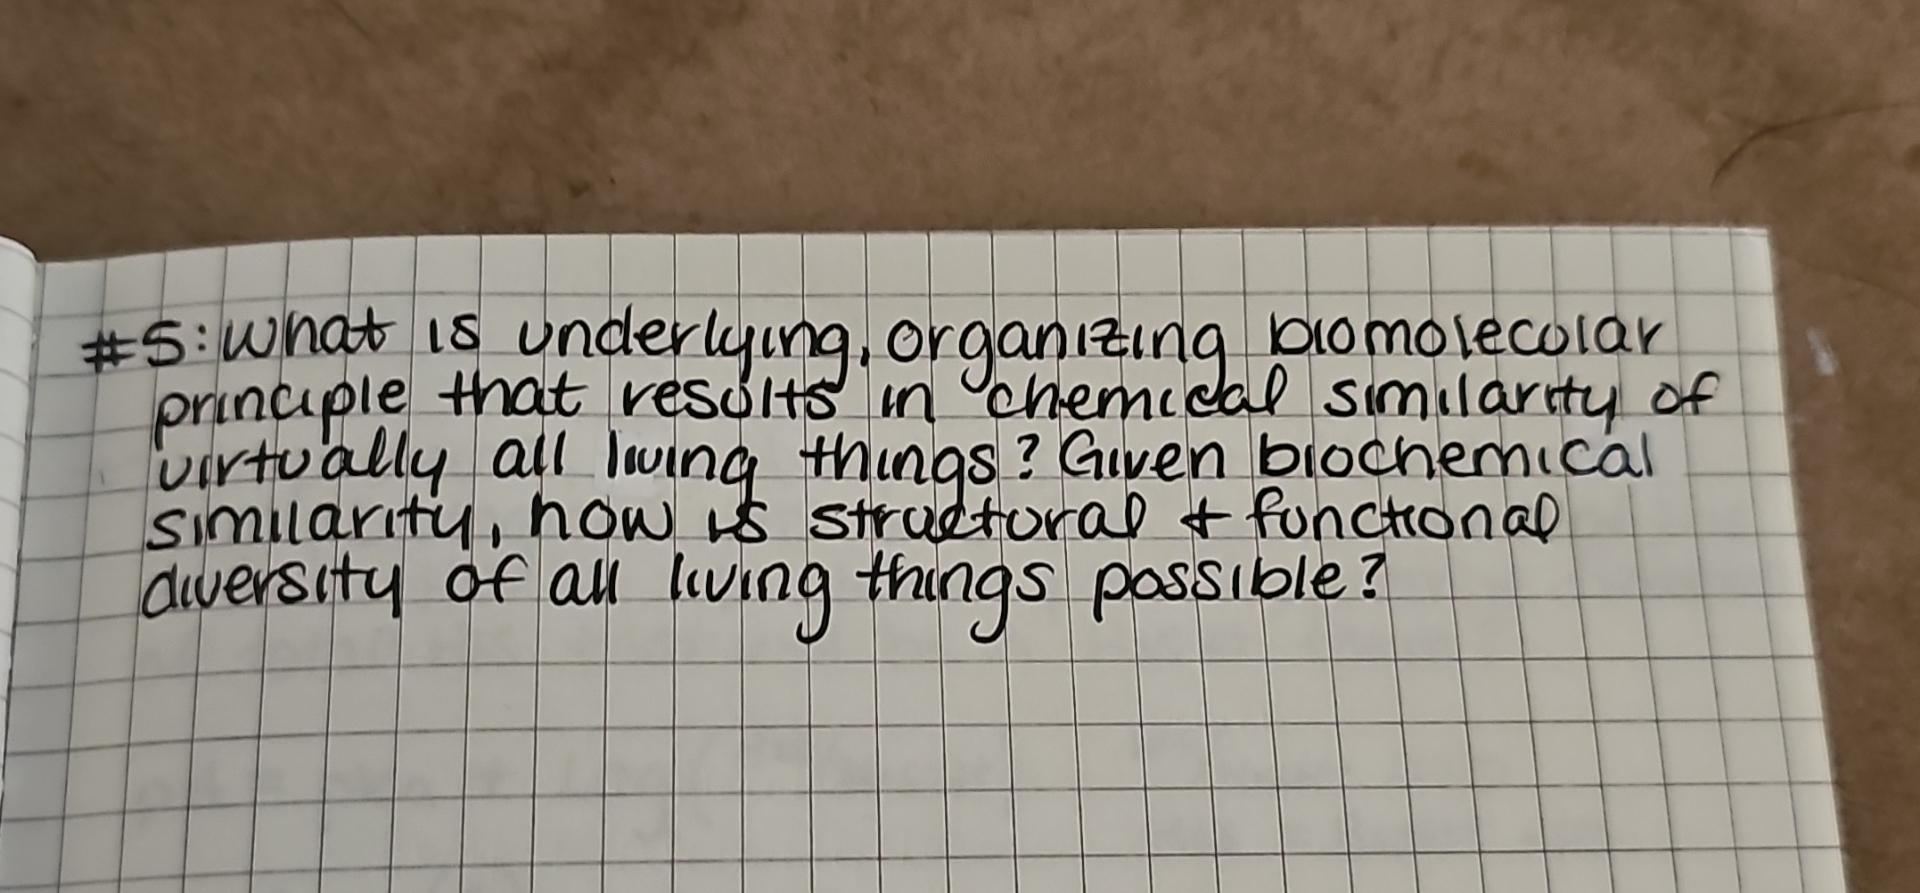 #5: What is underlying, organizing biomolecular
principle that results in chemical similarity of
virtually all living things? Given biochemical
similarity, how is structural + functional
diversity of all living things possible?